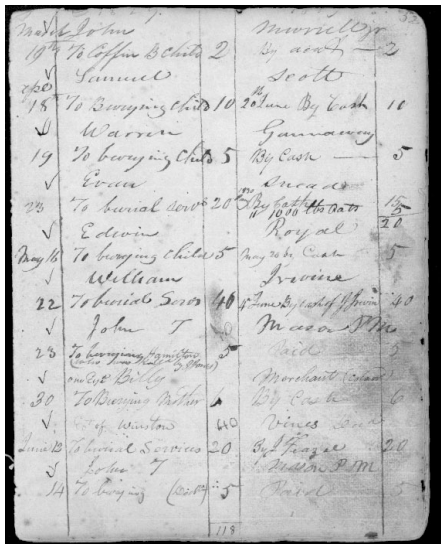 March John Murrell Jr
19th To Coffin & Child 2 By acct — 2
Samuel Scott
18 To Burying Child 10 20th June By Cash 10
Warren Gannaway
19 To burying Child 5 By Cash — 5
Evan Snead
23 To burial servs 20 By Cash 15
" 1000 lbs Oats 5
20
Edwin Royal
May 16 To burying Child 5 May 20 By Cash 5
William Irvine
22 To burial Servs 40 4 June By cash of J Irvin 40
John T Mason P M
23 To burying Hamilton 5 Paid 5
Billy Merchant
30 To Burying Mother By Cash 6
of Winston 40 Vines
June 13 To burial Services 20 By J Frazer 20
John T Mason P M
14 To burying 5 Paid 5
118